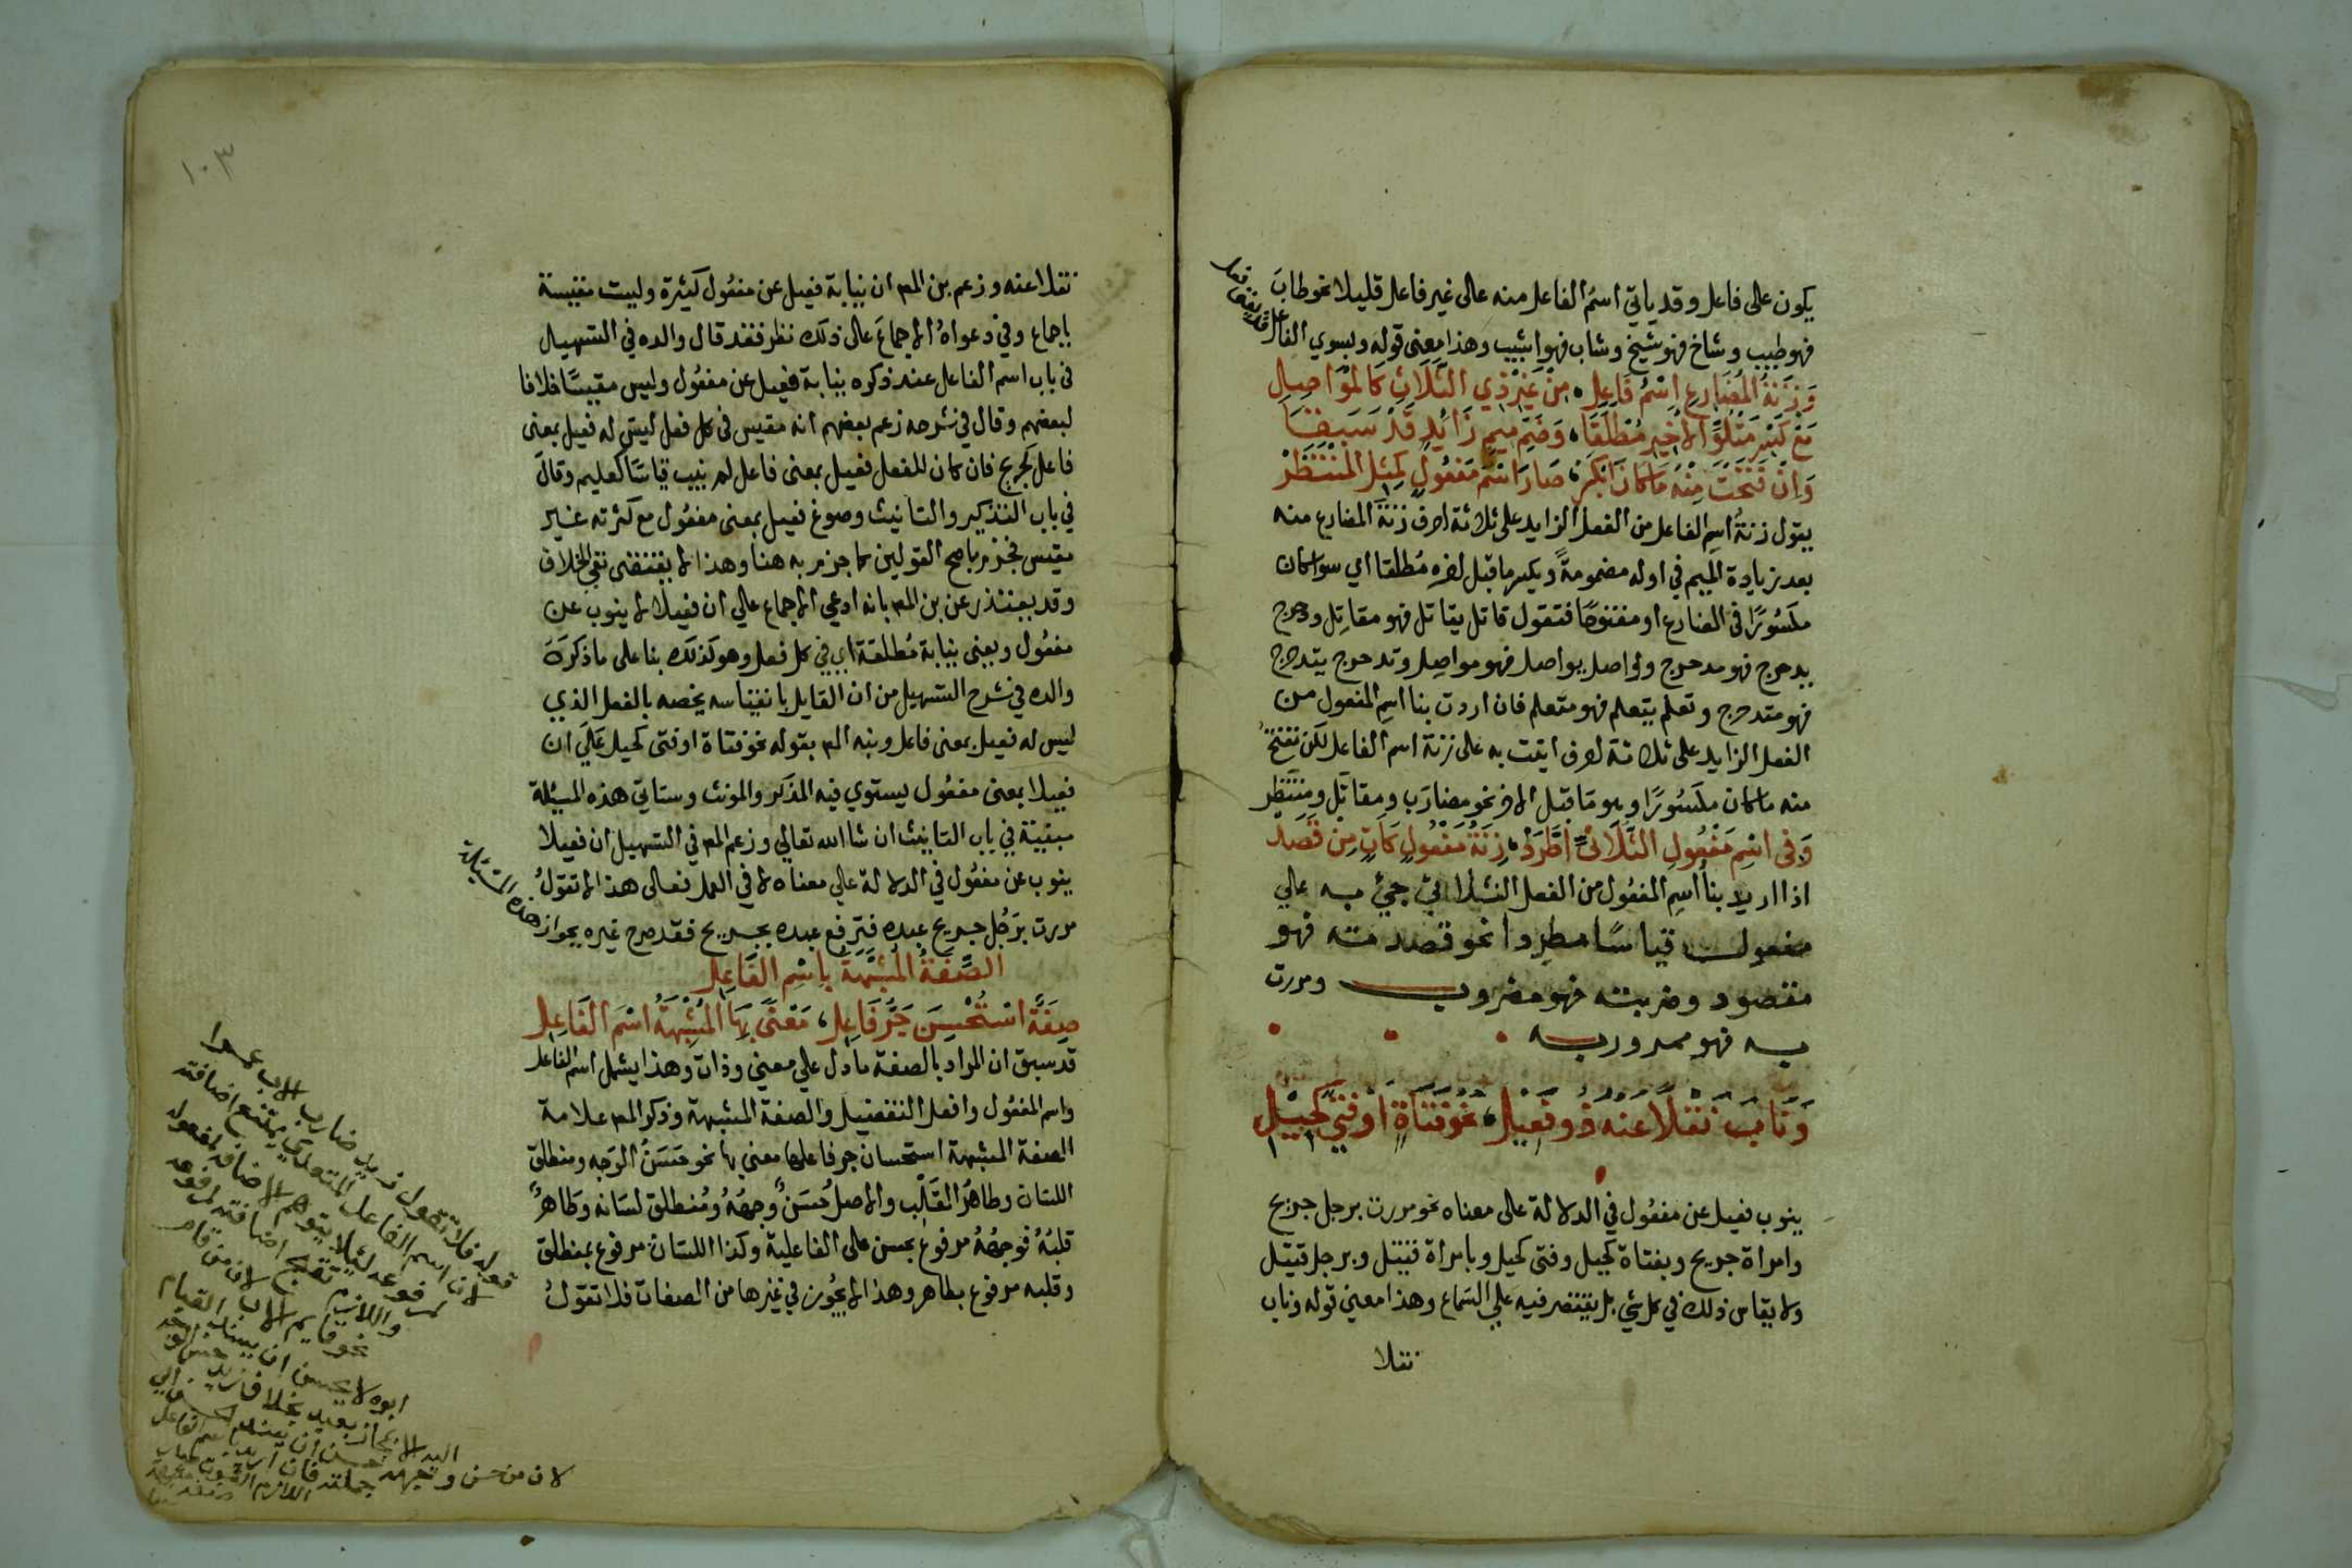 يكون على فاعل وقد ياتي اسم الفاعل منه على غير فاعل قليلا نحو طاب
فهو طيب وشاخ فهو شيخ وشاب فهو اشيب وهذا معنى قوله وبسوي الفاعل
قد يغنى فعل
وَزِنَةُ المُضَارِعِ اسْمُ فَاعِلِ مِنْ غَيْرِ ذِي الثَّلَاثِ كَالمُوَاصِلِ
مَعْ كَسْرِ مَتْلُوِّ الأخِيرِ مُطْلَقَا وَضَمِّ مِيمٍ زَائِدٍ قَدْ سَبَقَا
وَاِنْ فَتَحْتَ مِنْهُ مَا كَانَ انْكَسَرْ صَارَ اسْمَ مَفْعُولٍ كَمِثْلِ المُنْتَظَرْ
يقول زنةُ اسمِ الفاعل من الفعل الزايد على ثلاثة احرف زنةَ المضارع منه
بعد زيادة الميم في اوله مضمومةً ويكسر ما قبل اخره مُطلقا اي سوا كان
مكسُورًا في المضارع او مفتوحًا فتقول قاتل يقاتل فهو مقاتِل ودحرج
يدحرج فهو مدحرج وواصل يواصل فهو مواصِل وتدحرج يتدحرج
فهو متدحرج وتعلم يتعلم فهو متعلم فان اردت بنا اسمِ المفعول من
الفعل الزايد على ثلاثة احرف اتيت به على زنة اسم الفاعل لكن تفتحُ
منه ما كان مكسُورًا وهو مَا قبل الاخر نحو مضارَب ومقاتَل ومنتَظَر
وَفي اسْمِ مَفْعُولِ الثُّلَاثيِّ اطَّرَدْ زِنَةُ مَفْعُولٍ كَآتٍ مِن قَصَد
اذا اريد بنا اسمِ المفعُول من الفعل الثلاثي جيْ به علي
مفعول قياسًا مطردا نحو قصدته فهو
مقصود وضربته فهو مضروب ومررت
به فهو ممرور به
وَنَابَ نَقْلًا عنه ذو فَعِيلِ نحو فتاةٍ او فتي كَحِيْلِ
ينوب فعيل عن مفعُول في الدلالة على معناه نحو مررت برجل جريح
وامراة جريح وبفتاة كحيل وفتى كحيل وبامراة قتيل وبرجل قتيل
ولا يقاس ذلك في كل شي بل يقتصر فيه علي السَماع وهذا معني قوله وناب
نقلا
١٠٣
نقلا عنه وزعم بن المص ان نيابة فعيل عن مفعُول كثيرة وليست مقيسة
باجماع وفي دعواهُ الاجماعَ على ذلك نظر فقد قال والده في التسهيل
في باب اسم الفاعل عند ذكره نيابة فعيل عن مفعُول وليس مقيسًا خلافا
لبعضهم وقال في شرحه زعم بعضهم انه مقيس في كل فعل ليس له فعيل بمعنى
فاعل كجريح فان كان للفعل فعيل بمعنى فاعل لم ينب قياسًا كعليم وقالَ
في باب التذكير والتانيث وصوغ فعيل بمعنى مفعُول مع كثرته غير
مقيس فجزم باصح القولين كما جزم به هنا وهذا لا يقتضى نفي الخلاف
وقد يعتذر عن بن المص بانه ادعي الاجماع علي ان فعيلا لا ينوب عن
مفعُول ويعنى نيابة مُطلقة اي في كل فعل وهو كذلك بنا على ما ذكرَهَ
والده في شرح التسهيل من ان القايل بانقياسه يخصه بالفعل الذي
ليس له فعيل بمعنى فاعل ونبه المص بقوله نحو فتاة او فتى كحيل عَلَى ان
فعيلا بمعنى مفعُول يستوي فيه المذكر والمونث وستاتي هذه المسئلة
مبينة في باب التانيث ان شا الله تعالي وزعم المص في التسهيل ان فعيلا
ينوب عن مفعُول في الدلالة علي معناه لا في العمل فعلى هذا لا تقولُ
مررت برَجُل جريح عبده فترفع عبده بجريح فقد صرح غيره بجواز
هذه المسئلة
الصِّفَةُ المُشَبَّهَةُ بِاسْمِ الفَاعِلِ
صِفَةٌ اسْتُحْسِنَ جَرُّ فَاعِلِ مَعْنًى بِهَا المُشْبِهَةُ اسْمَ الفَاعِلِ
قد سبق ان المراد بالصفة ما دل علي معني وذات وهذا يشمل اسم الفاعل
واسم المفعُول وافعل التفضيل والصفة المشبهة وذكر المص علامة
الصفة المشبهة استحسان جر فاعلها معني بها نحو حَسَنُ الوَجه ومنطلق
اللسان وطاهرُ القَلْب والاصل حُسَنٌ وجههُ ومُنطلق لسَانه وطَاهرٌ
قلبُهُ فوجههُ مرفوع بحسن على الفاعلية وكذا اللسان مرفوع بمنطلق
وقلبه مرفوع بطاهر وهذا لا يجُوز في غيرها من الصفات فلا تقولُ
قوله فلا تقول زيد ضارب الاب عمرا
لان اسم الفاعل المتعدي يمتنع اضافته
لمرفوعه لئلا يتوهم الاضافة لمفعوله
واللازم تقبح اضافته لمرفوعه
نحو قايم الاب لان من قام
ابوه لا يحسن ان يسند القيام
اليه الا بمجاز بعيد بخلاف زيد حسن الوجه
لان من حسن وجهه حسن ان يسند الحسن الي
جملته فان